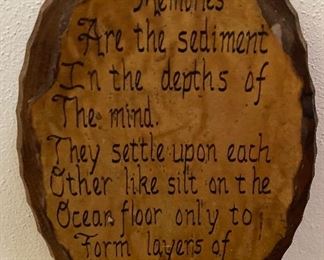 Memories
Are the sediment
In the depths of
The mind.
They settle upon each
Other like silt on the
Ocean floor only to
Form layers of